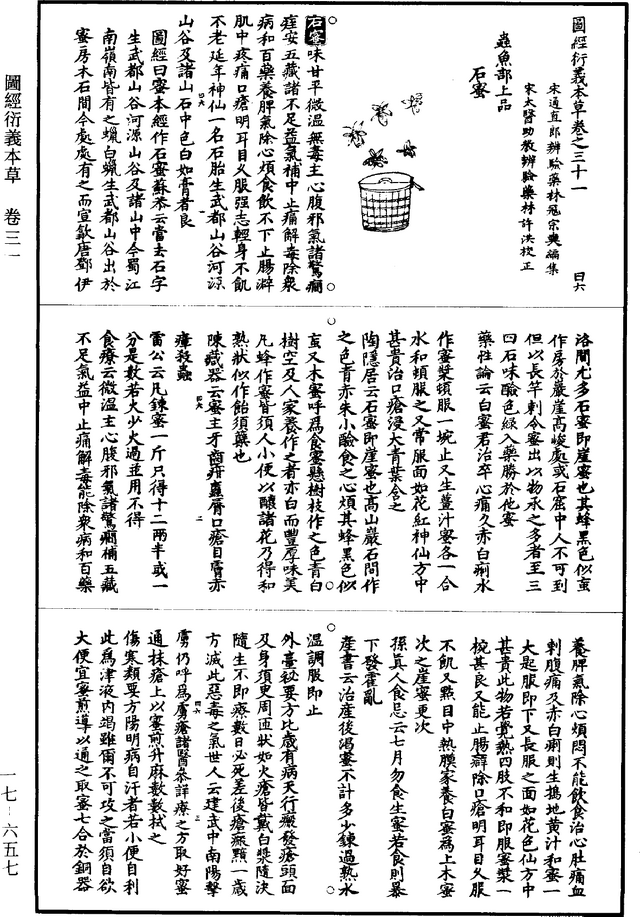 圖經衍義本草卷之三十一 曰六
宋通直郎辨驗藥材寇宗奭編集
宋太醫助教辨驗藥材許洪校正
蟲魚部上品
石蜜
石蜜味甘平微溫無毒主心腹邪氣諸驚癇
痓安五藏諸不足益氣補中止痛解毒除衆
病和百藥養脾氣除心煩食飲不下止腸澼
肌中疼痛口瘡明耳目久服强志輕身不飢
不老延年神仙一名石飴生武都山谷河源
山谷及諸山石中色白如膏者良
圖經曰蜜本經作石蜜蘇恭云當去石字
生武都山谷河源山谷及諸山中今蜀江
南嶺南皆有之蠟白蠟生武都山谷出於
蜜房木石間今處處有之而宣歙唐鄧伊
洛間尤多石蜜即崖蜜也其蜂黑色似䖟
作房於巖崖高峻處或石窟中人不可到
但以長竿刺令蜜出以物承之多者至三
四石味醶色綠入藥勝於他蜜
藥性論云白蜜君治卒心痛及赤白痢水
作蜜漿頓服一埦止又生薑汁蜜各一合
水和頓服之又常服面如花紅神仙方中
甚貴治口瘡浸大青葉含之
陶隱居云石蜜即崖蜜也高山巖石間作
之色青赤味小醶食之心煩其蜂黑色似
䖟又木蜜呼爲食蜜懸樹枝作之色青白
樹空及人家養作之者亦白而豐厚味美
凡蜂作蜜皆須人小便以釀諸花乃得和
熟狀似作飴須蘖也
陳藏器云蜜主牙齒疳䘌脣口瘡目膚赤
瘴殺蟲
雷公云凡鍊蜜一斤只得十二兩半或一
分是數若火少火過並用不得
食療云微溫主心腹邪氣諸驚癇補五藏
不足氣益中止痛解毒能除衆病和百藥
養脾氣除心煩悶不能飲食治心肚痛血
刺腹痛及赤白痢則生搗地黃汁和蜜一
大匙服即下又長服之面如花色仙方中
甚貴此物若覺熱四肢不和即服蜜漿一
椀甚良又能止腸癖除口瘡明耳目久服
不飢又點目中熱膜家養白蜜爲上木蜜
次之崖蜜更次
孫真人食忌云七月勿食生蜜若食則暴
下發霍亂
產書云治產後渴蜜不計多少鍊過熟水
溫調服即止
外臺秘要方比歲有病天行斑發瘡頭面
及身須臾周匝狀如火瘡皆戴白漿隨決
隨生不即療數日必死差後瘡瘢黯一歲
方滅此惡毒之氣世人云建武中南陽擊
虜仍呼爲虜瘡諸醫叅詳療之方取好蜜
通抹瘡上以蜜煎升麻數數拭之
傷寒類要方陽明病自汗者若小便自利
此爲津液內竭雖爾不可攻之當須自欲
大便宜蜜煎導以通之取蜜七合於銅器
圖經衍義本草 卷三一
一七-六五七